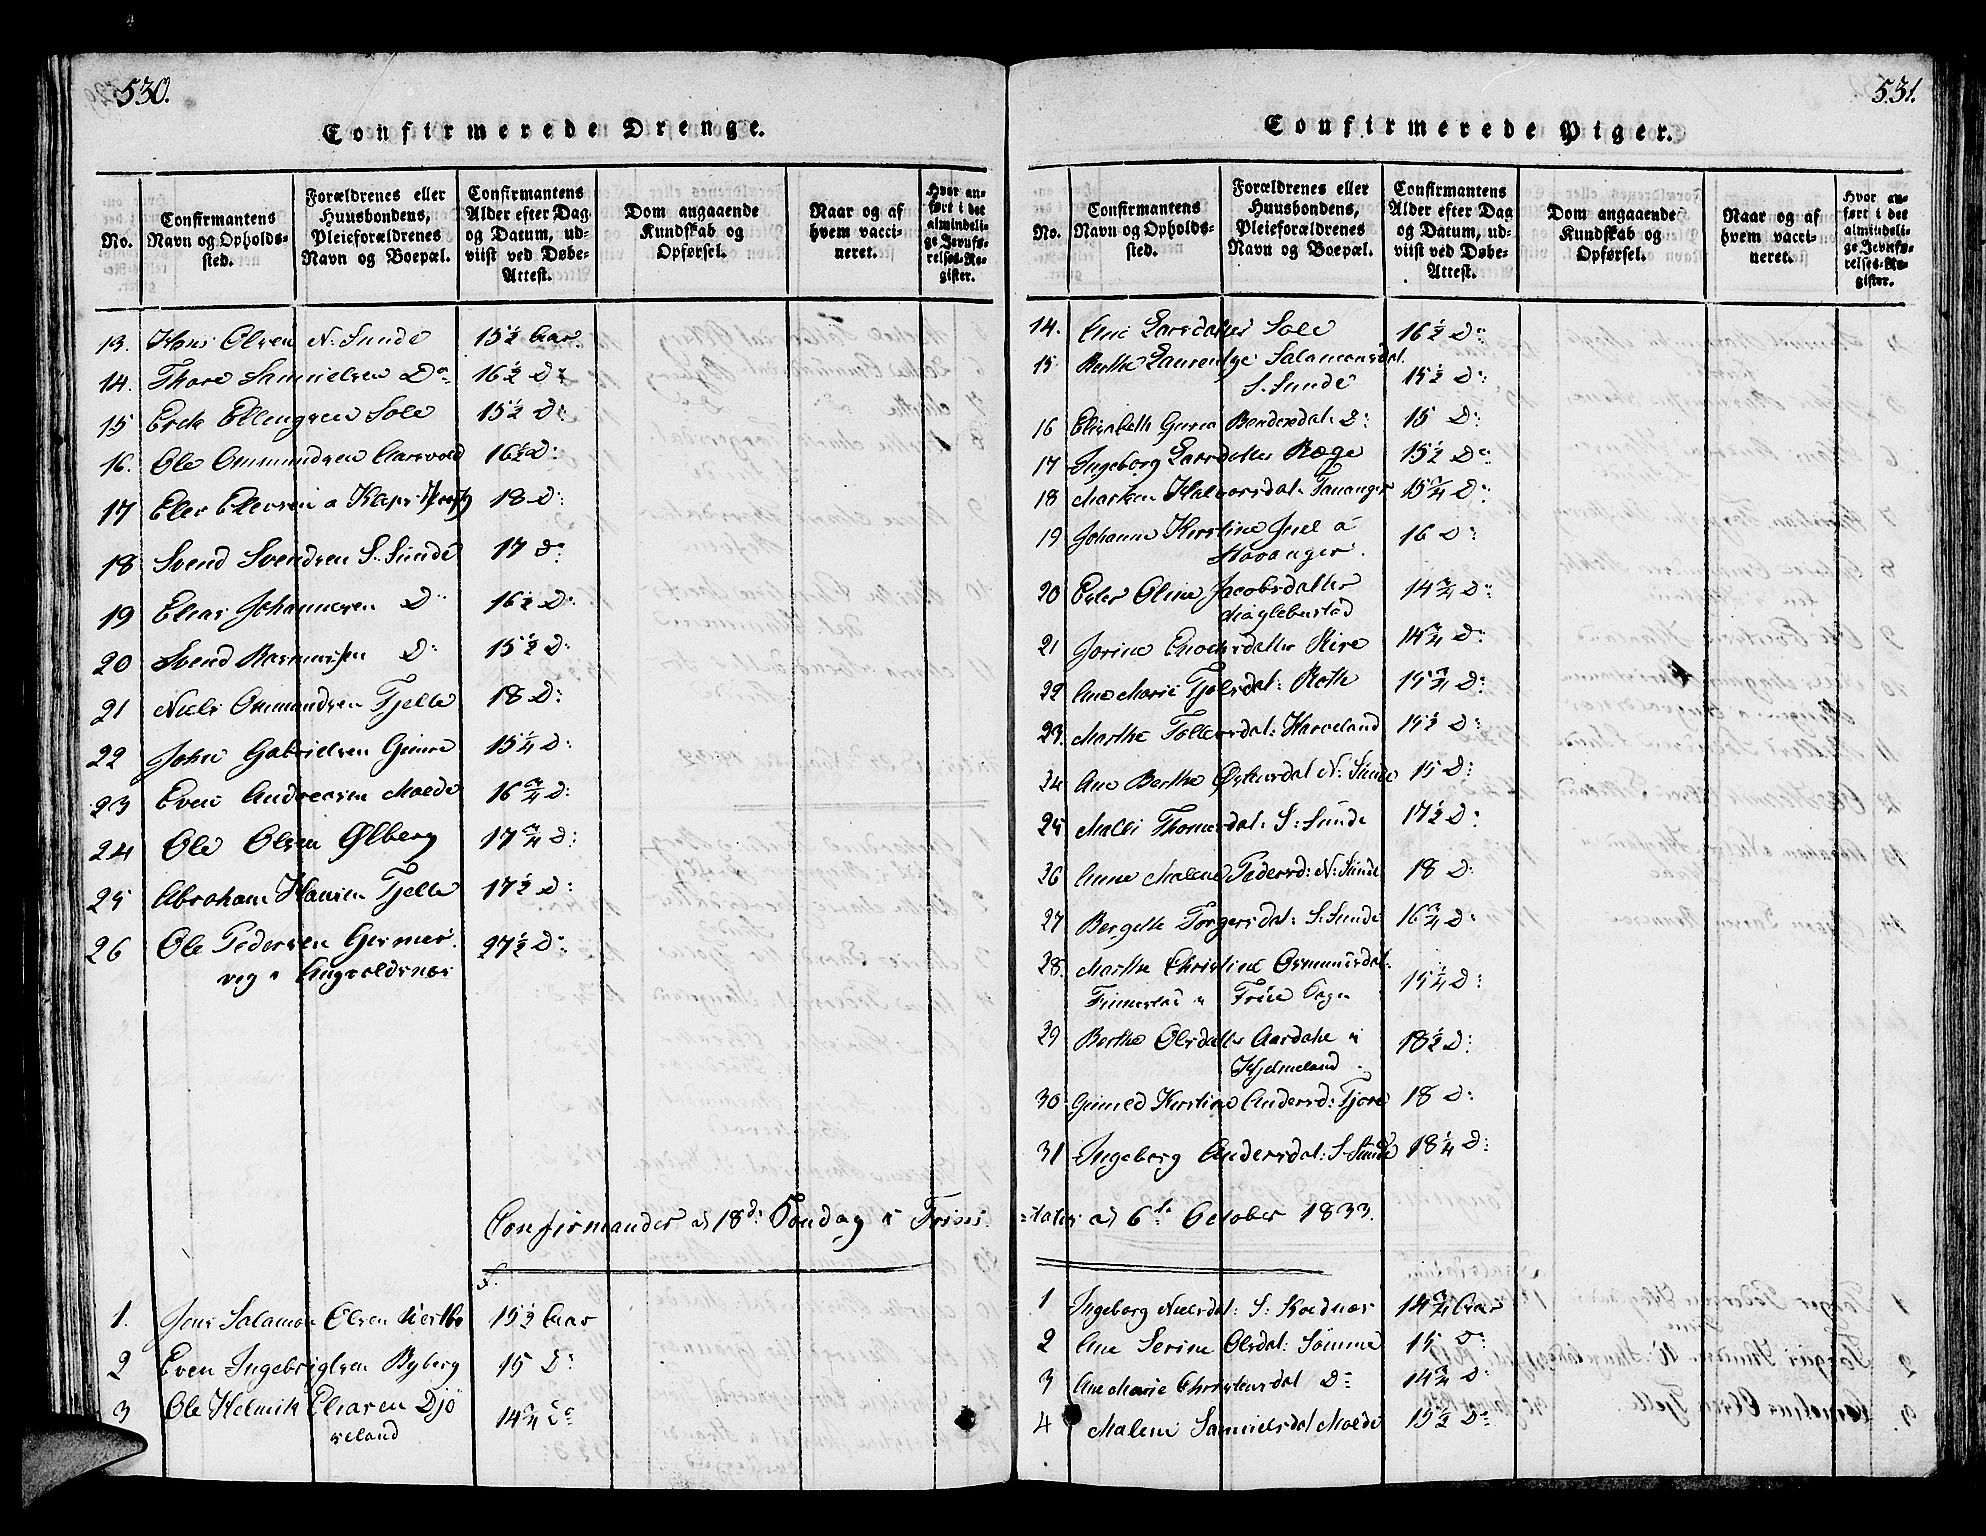 530.
Confirmerede Drenge.
No.
Confirmantens Navn og Opholdssted.
Forældrenes eller Huusbondens, Pleieforældrenes Navn og Boepæl.
Confirmantens Alder efter Dag og Datum, udviist ved Døbe-Attest.
Dom angaaende Kundskab og Opførsel.
Naar og af hvem vaccineret.
Hvor anført i det almindelige Jevnførelses-Register.
13. Hans Olsen N. Sunde 15½ Aar.
14. Thore Samuelsen Do 16½ D:
15 Erik Ellengsen Sole 15½ D:
16. Ole Ommundsen Aarsvold 16½ D:
17 Eler Elersen a 18 D:
18 Svend Svendsen S. Sunde 17 Do
19 Elias Johannesen D: 16½ D:
20 Svend Rasmussen D: 15½ D:
21 Niels Ommundsen Tjelle 18 D:
22 John Gabrielsen Gimre 15¼ D:
23 Even Andreasen Molde 16¾ D:
24 Ole Olsen Ølberg 17¾ D:
25 Abraham Hansen Tjelle 17½ D:
26 Ole Pedersen
veg 27½ D:
Confirmander
18d: Søndag
1. Jens Salamon Olsen 15½ Aar
2 Even Ingebrigtsen Byberg 15 D:
3 Ole Helmik Eliasen Djø
reland 14¾ Do
531.
Confirmerede Piger.
No.
Confirmantens Navn og Opholdssted.
Forældrenes eller Huusbondens, Pleieforældrenes Navn og Boepæl.
Confirmantens Alder efter Dag og Datum, udviist ved Døbe-Attest.
Dom angaaende Kundskab og Opførsel.
Naar og af hvem vaccineret.
Hvor anført i det almindelige Jevnførelses-Register.
14. Ane Larsdatter Sole 16½ D:
15. Berthe Laurentze Salamonsdal.
S. Sunde 15½ D:
16 Elisabeth Guria D: 15 D:
17 Ingeborg Larsdatter Ræge 15½ Do
18 Marken Halvorsdal: Tananger 15¾ D:
19 Johanne Kirstine Juel a
Stavanger. 16 D:
20 Ester Oline Jacobsdatter
Meglebustad 14¾ D:
21 Jorine Enochsdatter 14¾ D:
22 Ane Marie 15¾ D:
23. Marthe Tollevsdal: Harveland 15½ D:
24 Ane Berthe N: Sunde 15 D:
25 Malli Thomasdal. S: Sunde 17½ D:
26 Anne Malene Pedersd: N: Sunde 18 D:
27 Bergitte Torgersdal: S. Sunde 16¾ D:
28. Marthe Christine
15¼ D:
29 Berthe Olsdatter Aardahl i
Hjelmeland 18½ D:
30 Kirstine Andersd: Tjore 18 D:
31 Ingeborg Andersdal: S. Sunde 18¼ D:
6te October 1833.
1 Ingeborg Nielsdal: S. Kolnæs 14¾ Aar
2 Ane Serine Olsdal: Sømme 15 Do
3 Ane Marie Christensdal D: 14¾ D:
4 Malene Samuelsdal Molde 15½ Do